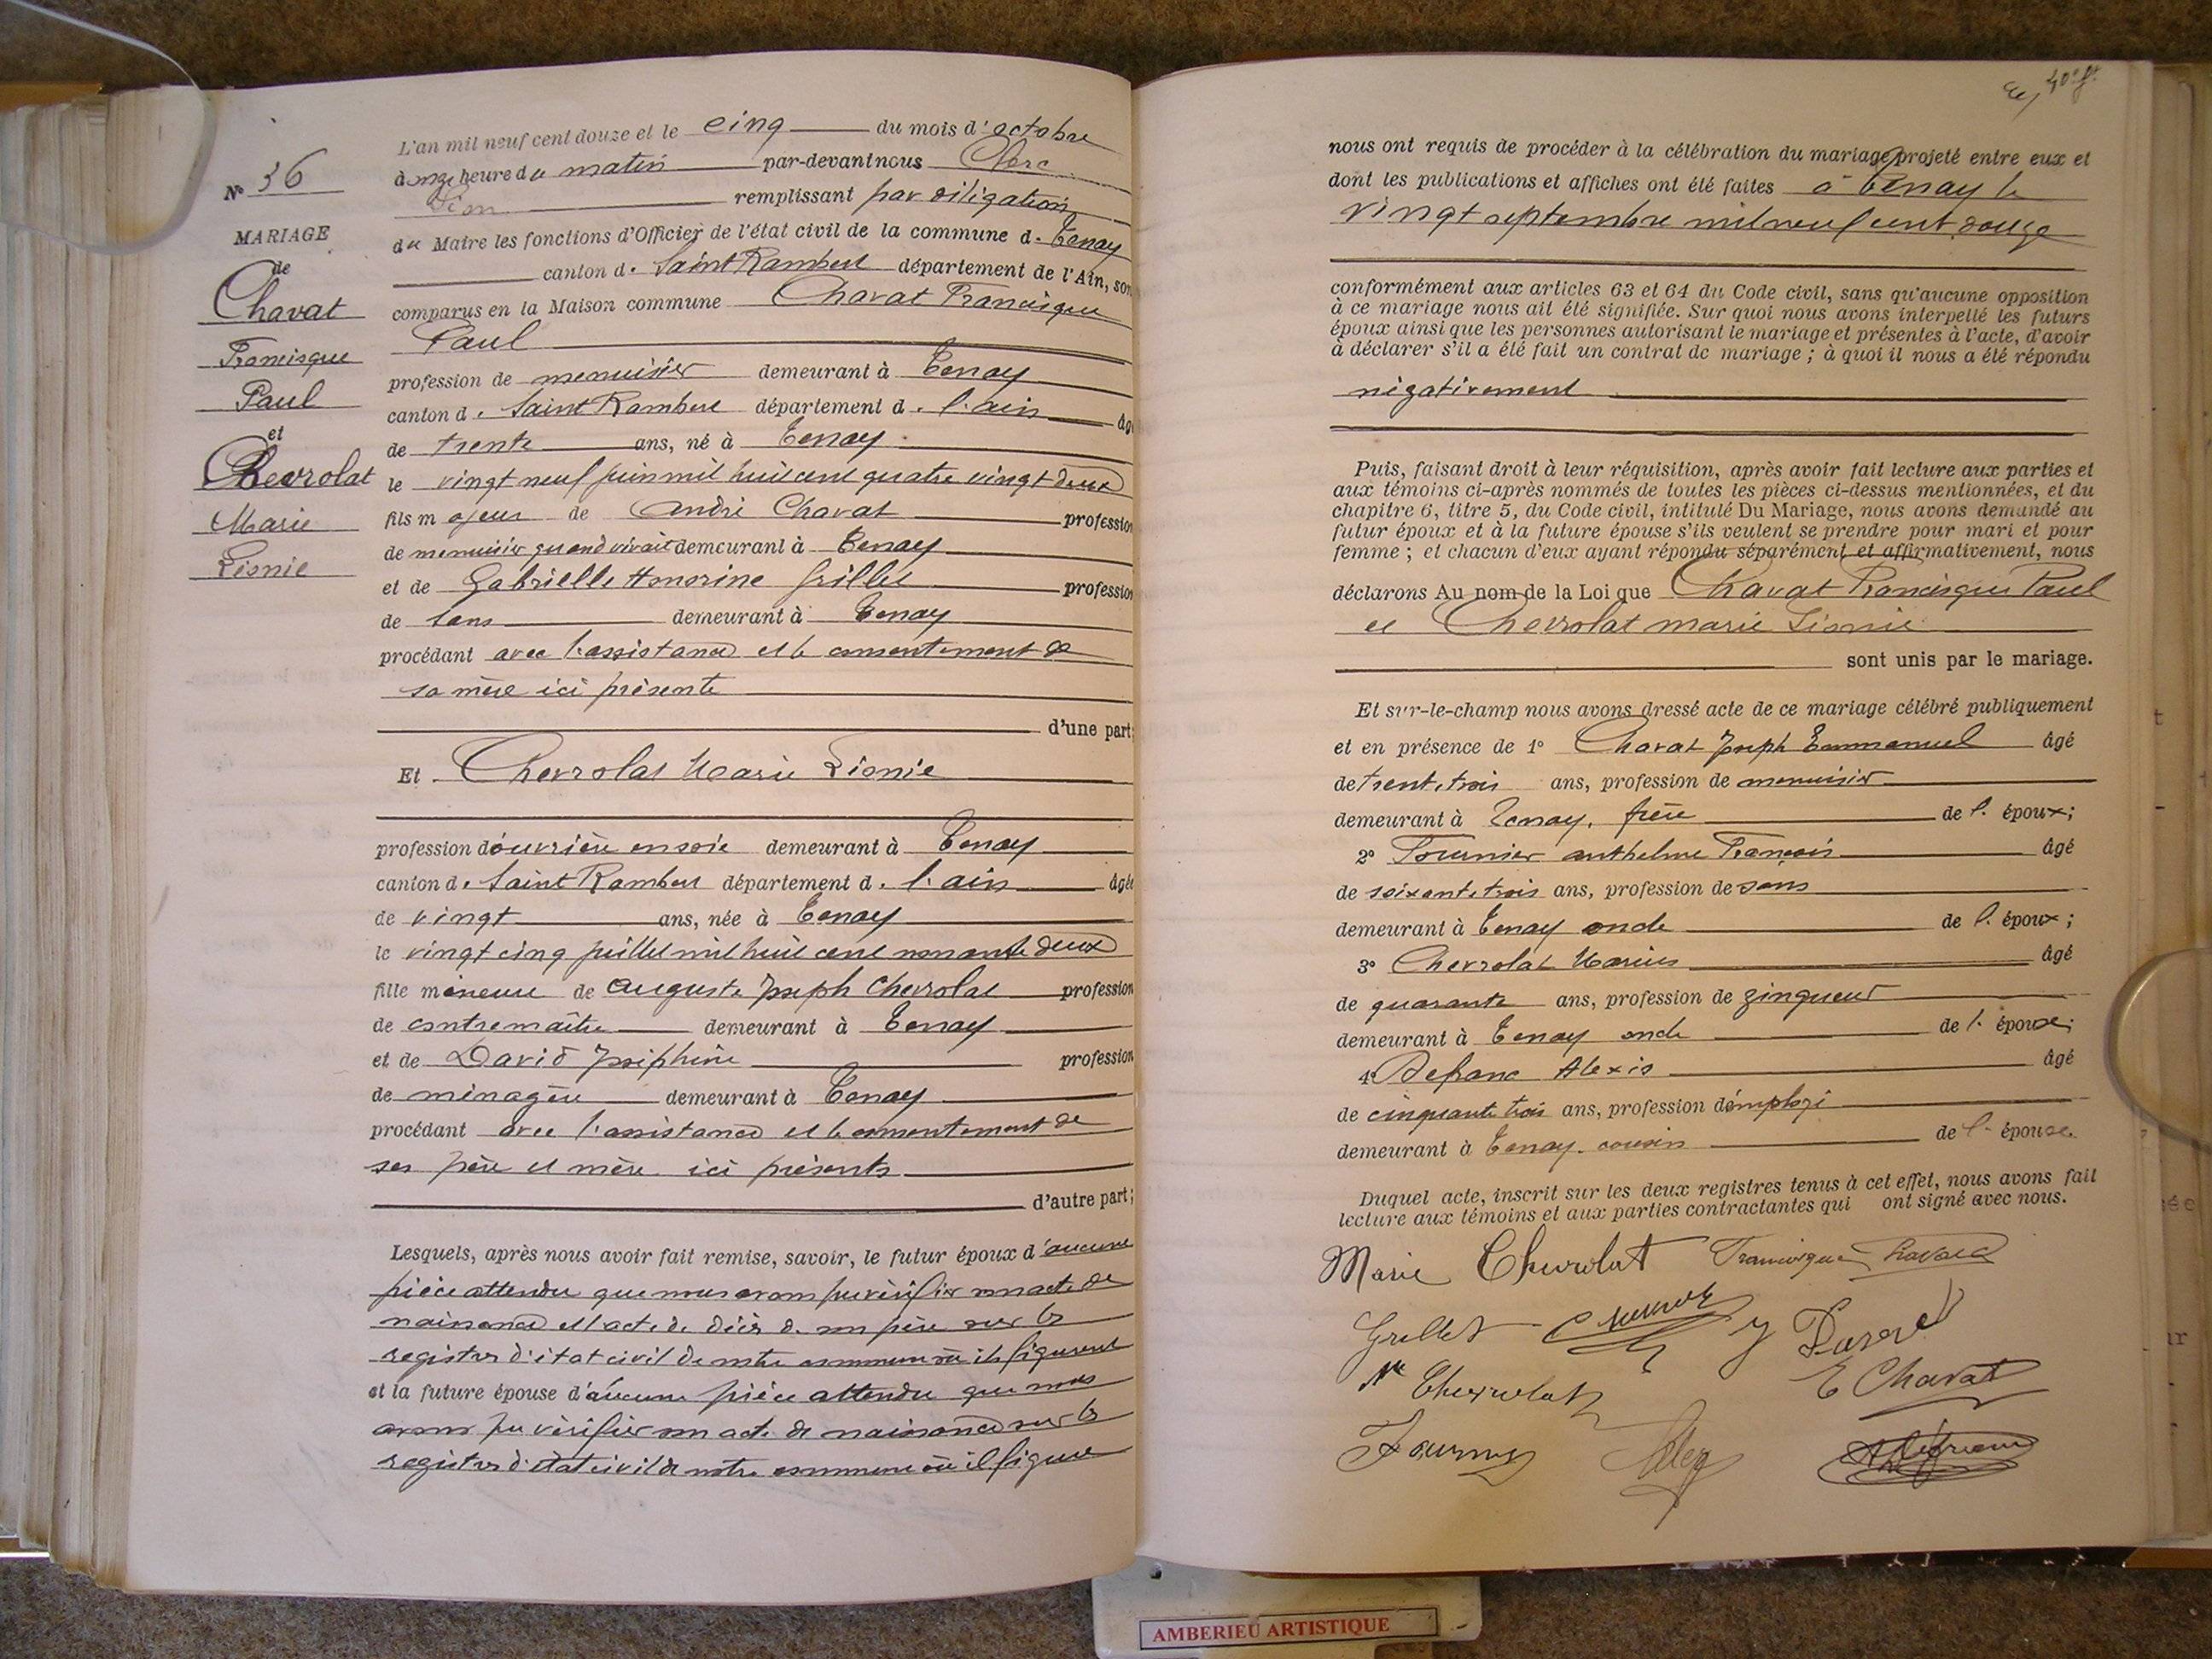 N° 36
MARIAGE
de
Chavat
Francisque
Paul
et
Chevrolat
Marie
Léonie
L'an mil neuf cent douze et le cinq du mois d'octobre
à onze heure du matin par-devant nous Clerc
Léon remplissant par délégation
du Maire les fonctions d'Officier de l'état civil de la commune de Tenay
canton de Saint Rambert département de l'Ain, son
comparus en la Maison commune Chavat Francisque
Paul
profession de menuisier demeurant à Tenay
canton de Saint Rambert département de l'ain âgé
de trente ans, né à Tenay
le vingt neuf juin mil huit cent quatre vingt deux
fils majeur de André Chavat profession
de menuisier quand vivait demeurant à Tenay
et de Gabrielle Honorine Grillet profession
de sans demeurant à Tenay
procédant avec l'assistance et le consentement de
sa mère ici présente
d'une part;
Et Chevrolat Marie Léonie
profession d'ouvrière en soie demeurant à Tenay
canton de Saint Rambert département de l'ain âgée
de vingt ans, née à Tenay
le vingt cinq juillet mil huit cent nonante deux
fille mineure de Auguste Joseph Chevrolat profession
de contremaître demeurant à Tenay
et de David Joséphine profession
de ménagère demeurant à Tenay
procédant avec l'assistance et le consentement de
ses père et mère ici présents
d'autre part;
Lesquels, après nous avoir fait remise, savoir, le futur époux d'aucune
pièce attendu que nous avons pu vérifier son acte de
naissance et l'acte de décès de son père sur les
registres d'état civil de notre commune où ils figurent
et la future épouse d'aucune pièce attendu que nous
avons pu vérifier son acte de naissance sur les
registres d'état civil de notre commune où il figure
40e ft
nous ont requis de procéder à la célébration du mariage projeté entre eux et
dont les publications et affiches ont été faites à Tenay le
vingt septembre mil neuf cent douze
conformément aux articles 63 et 64 du Code civil, sans qu'aucune opposition
à ce mariage nous ait été signifiée. Sur quoi nous avons interpellé les futurs
époux ainsi que les personnes autorisant le mariage et présentes à l'acte, d'avoir
à déclarer s'il a été fait un contrat de mariage ; à quoi il nous a été répondu
négativement
Puis, faisant droit à leur réquisition, après avoir fait lecture aux parties et
aux témoins ci-après nommés de toutes les pièces ci-dessus mentionnées, et du
chapitre 6, titre 5, du Code civil, intitulé Du Mariage, nous avons demandé au
futur époux et à la future épouse s'ils veulent se prendre pour mari et pour
femme ; et chacun d'eux ayant répondu séparément et affirmativement, nous
déclarons Au nom de la Loi que Chavat Francisque Paul
et Chevrolat marie Léonie
sont unis par le mariage.
Et sur-le-champ nous avons dressé acte de ce mariage célébré publiquement
et en présence de 1° Chavat Joseph Emmanuel âgé
de trente trois ans, profession de menuisier
demeurant à Tenay, frère de l'époux;
2° Fournier anthelme François âgé
de soixante trois ans, profession de sans
demeurant à Tenay oncle de l'époux;
3° Chevrolat Marius âgé
de quarante ans, profession de zingueur
demeurant à Tenay oncle de l'épouse;
4° Defranc Alexis âgé
de cinquante trois ans, profession d'employé
demeurant à Tenay. cousin de l'épouse.
Duquel acte, inscrit sur les deux registres tenus à cet effet, nous avons fait
lecture aux témoins et aux parties contractantes qui ont signé avec nous.
Marie Chevrolat Francisque Chavat
Grillet J David
M Chevrolat E Chavat
Fournier
AMBERIEU ARTISTIQUE